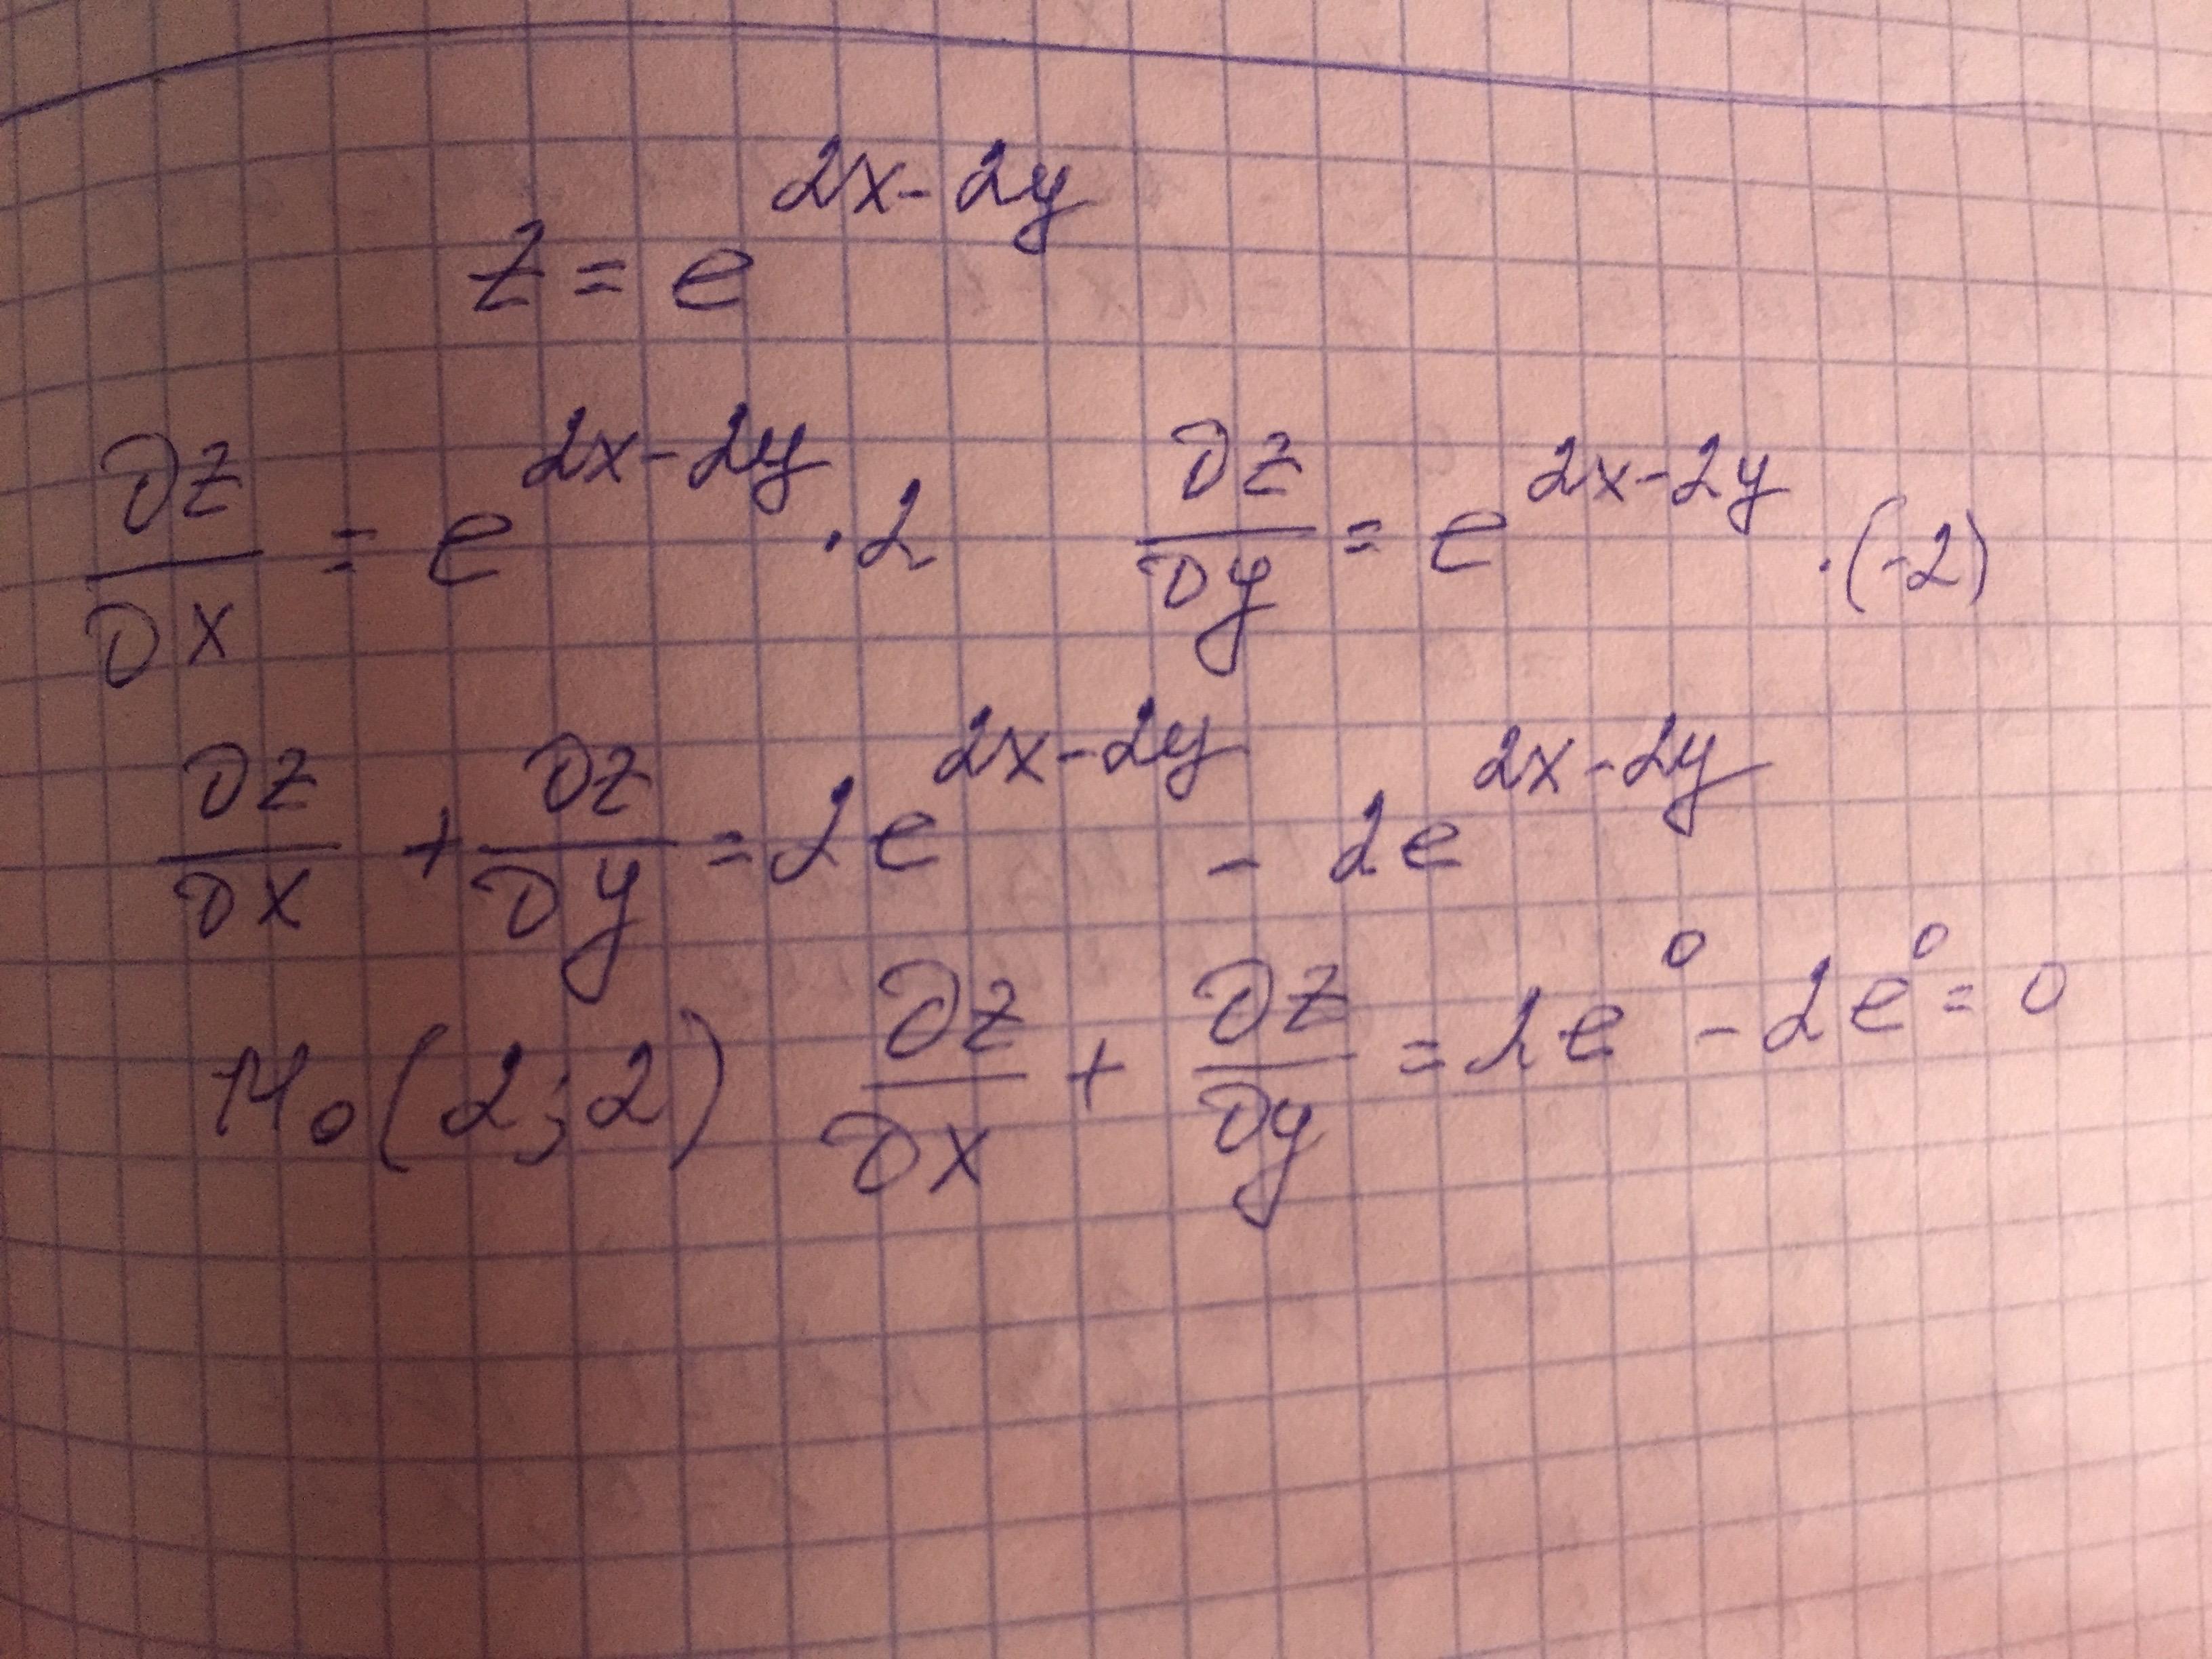 z = e^{2x-2y}
∂z/∂x = e^{2x-2y} · 2    ∂z/∂y = e^{2x-2y} · (-2)
∂z/∂x + ∂z/∂y = 2e^{2x-2y} - 2e^{2x-2y}
M₀(2;2)  ∂z/∂x + ∂z/∂y = 2e^0 - 2e^0 = 0